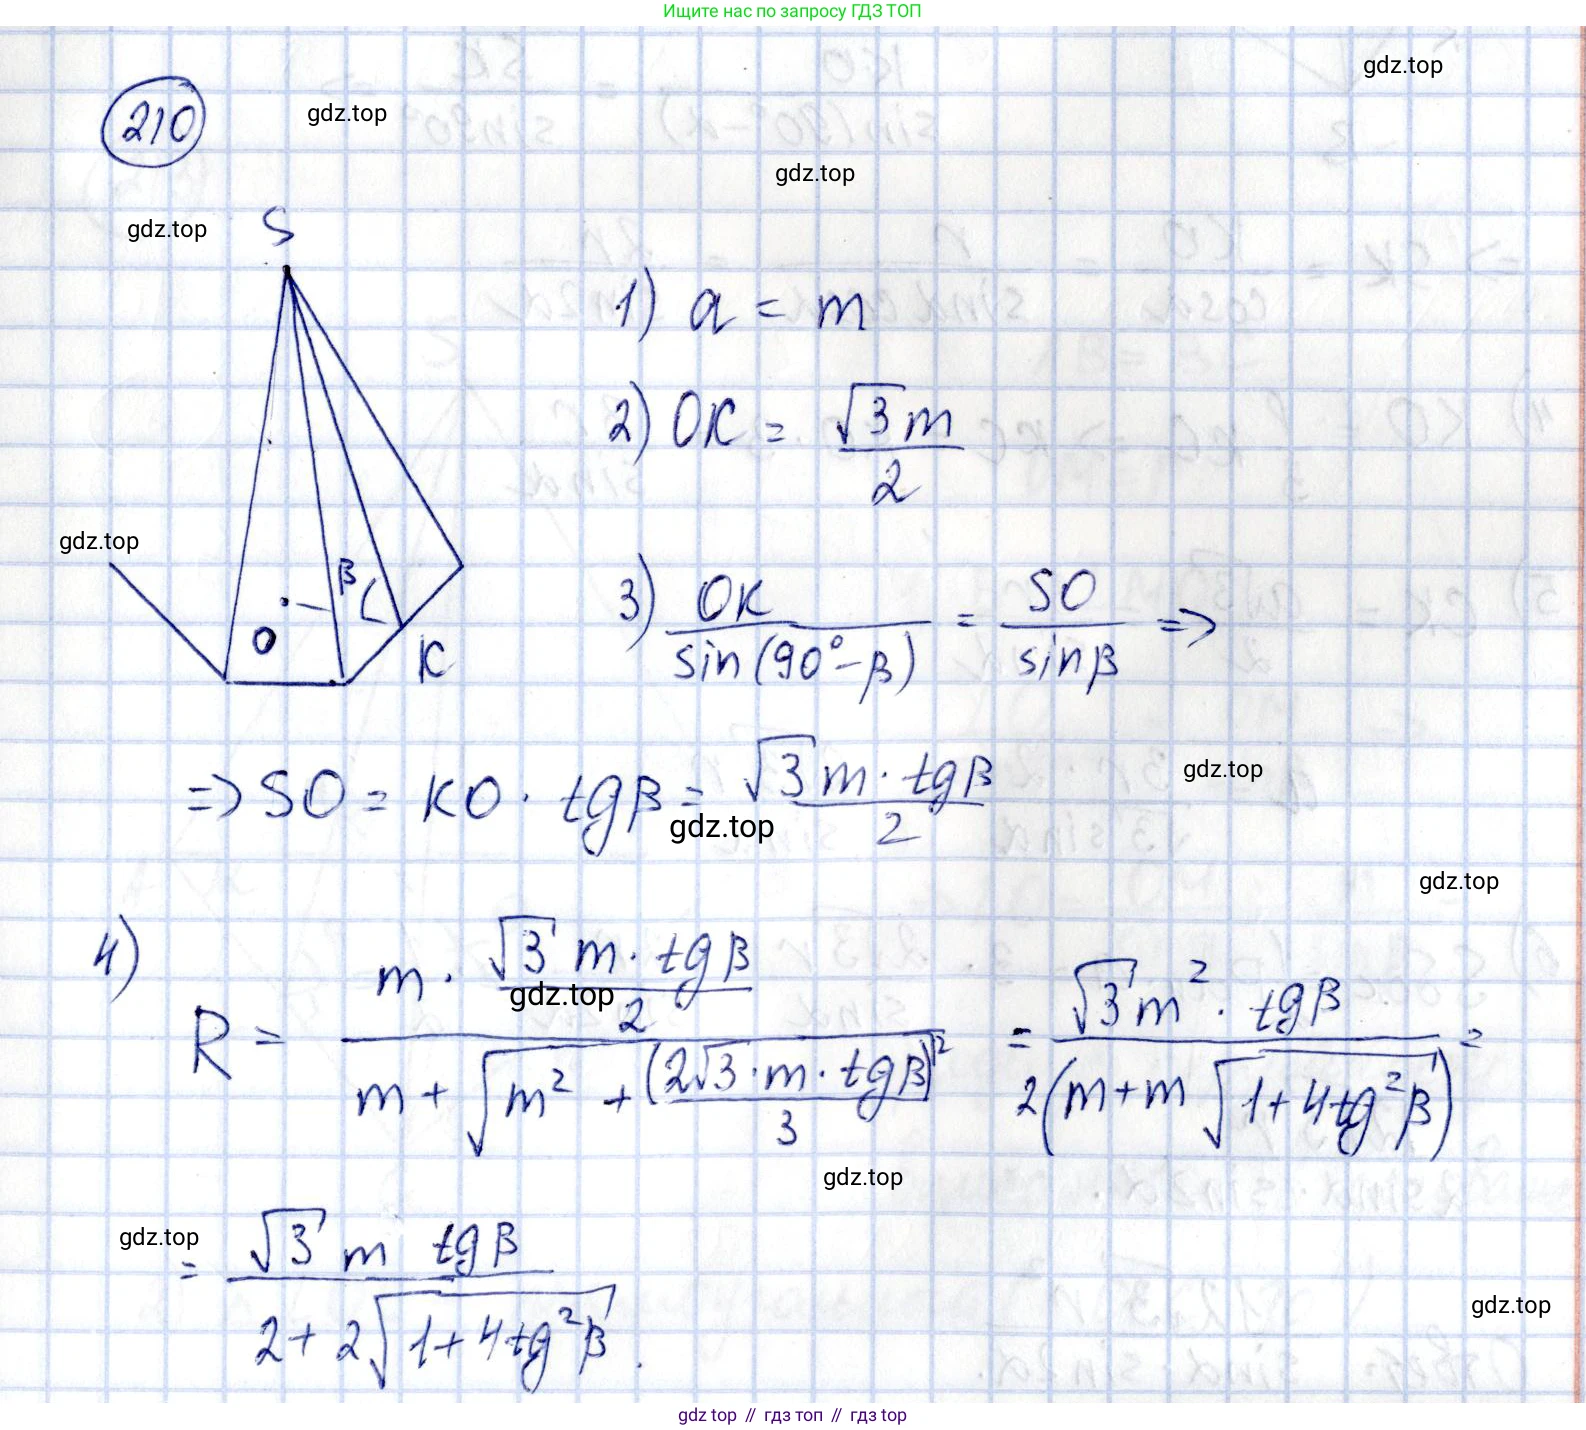 Ищите нас по запросу ГДЗ ТОП
gdz.top
210
gdz.top
gdz.top
gdz.top
S
1) a = m
2) OK = √3 m / 2
gdz.top
β
O
K
3) OK / sin(90°-β) = SO / sinβ =>
=> SO = KO · tgβ = √3 m · tgβ / 2
gdz.top
gdz.top
gdz.top
4) R = m · √3 m · tgβ / 2 / m + √m² + (2√3 · m · tgβ)² / 3 = √3 m² · tgβ / 2(m + m √1 + 4tg²β) =
gdz.top
gdz.top
gdz.top
= √3 m tgβ / 2 + 2√1 + 4tg²β .
gdz.top
gdz top // гдз топ // гдз top